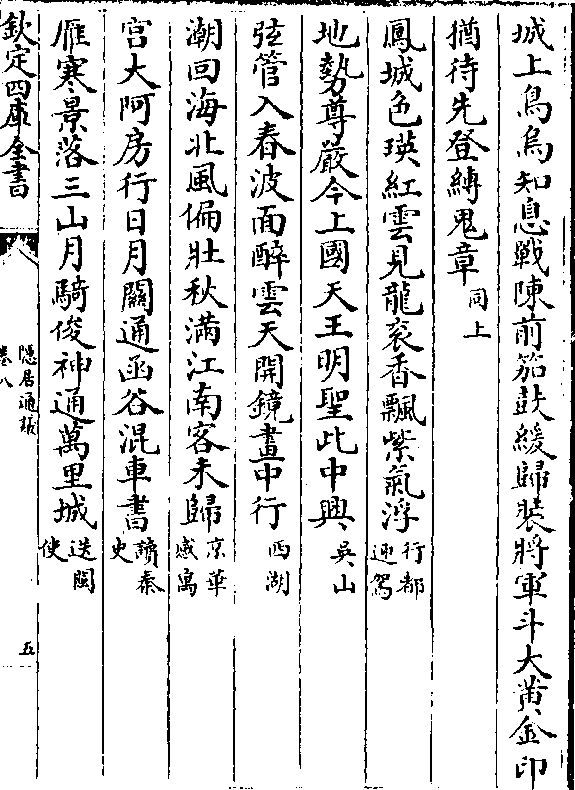 城上鳥烏知息戰陳前笳鼔緩歸裝將軍斗大黄金印
猶待先登縛鬼章同上
鳳城色瑛紅雲見龍衮香飄紫氣浮行都迎駕
地勢尊嚴今上國天王明聖此中興吳山
弦管入春波面醉雲天開鏡畫中行西湖
潮回海北風偏壯秋滿江南客未歸京華感寓
宫大阿房行日月闗通函谷混車書讀秦史
雁寒景落三山月騎俊神通萬里城送閩使
欽定四庫全書
隠居通議
卷八
五